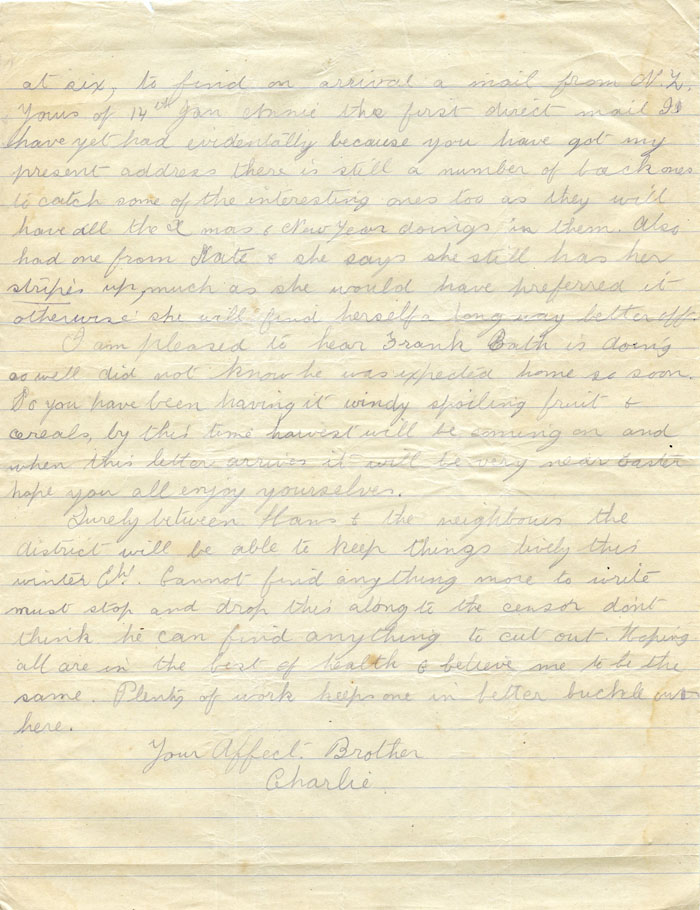 at six, to find on arrival a mail from N.Z.
Yours of 14th Jan Annie the first direct mail I
have yet had evidentally because you have got my
present address there is still a number of back ones
to catch some of the interesting ones too as they will
have all the X mas & New Year doings in them. Also
had one from Kate & she says she still has her
stripes up, much as she would have preferred it
otherwise she will find herself a long way better off.
I am pleased to hear Frank Bath is doing
so well did not know he was expected home so soon.
So you have been having it windy spoiling fruit &
cereals, by this time harvest will be coming on and
when this letter arrives it will be very near Easter
hope you all enjoy yourselves.
Surely between Hans & the neighbours the
district will be able to keep things lively this
winter Eh!. Cannot find anything more to write
must stop and drop this along to the censor dont
think he can find anything to cut out. Hoping
all are in the best of health & believe me to be the
same. Plenty of work keeps one in better buckle out
here.
Your Affect. Brother
Charlie.